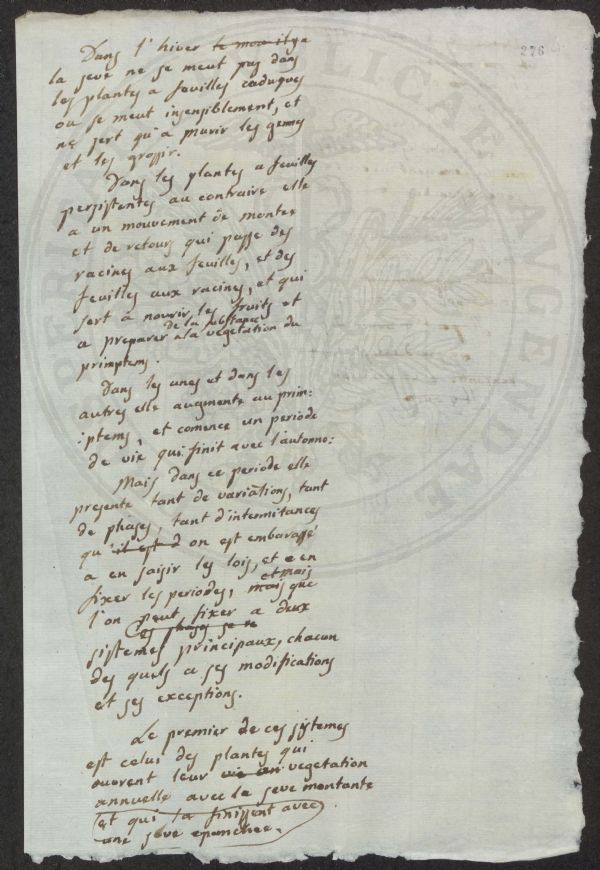 276
Dans l'hiver le mou il y a
la seve ne se meut pas dans
les plantes a feuilles caduques
ou se meut insensiblement, et
ne sert qu'a murir les germes
et les grossir.
Dans les plantes a feuilles
persistentes au contraire elle
a un mouvement de montee
et de retour qui passe des
racines aux feuilles, et des
feuilles aux racines, et qui
sert a nourir les fruits et
de la substance
a preparer a la vegetation du
primptems.
Dans les unes et dans les
autres elle augmente au prim:
:ptems, et comence un periode
de vie qui finit avec l'automno:
Mais dans ce periode elle
presente tant de variations, tant
de phases, tant d'intermitances
qu'il est d on est embarassé
a en saisir les lois, et a en
et mais
fixer les periodes, mais que
l'on peut fixer a deux
es phases se re
sistemes principaux, chacun
des quels a ses modifications
et ses exceptions.
Le premier de ces sistemes
est celui des plantes qui
ouvrent leur vie en vegetation
annuelle avec la seve montante
et qui la finissent avec
une seve epanchée.